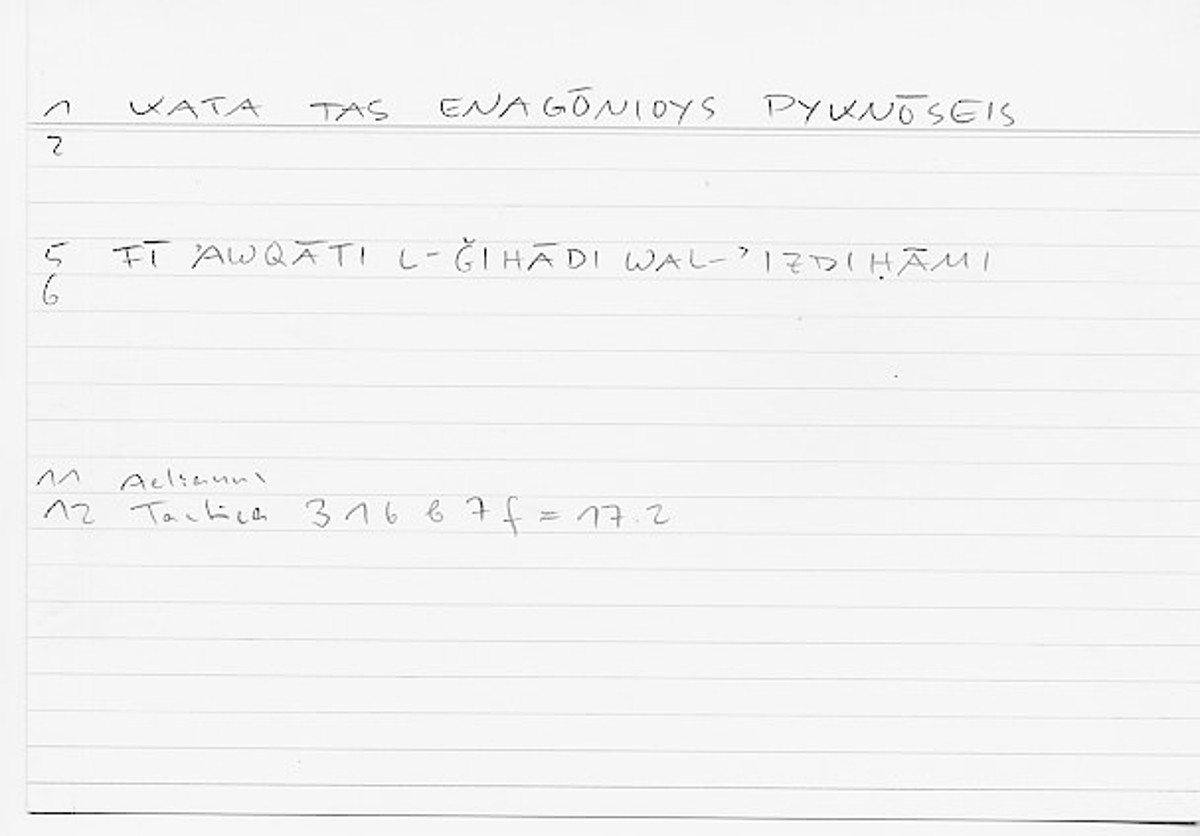 1 KATA TAS ENAGŌNIOYS PYKNŌSEIS
2
5 FĪ ʾAWQĀTI L-ǦIHĀDI WAL-ʾIZDIḤĀMI
6
11 Aelianus
12 Tactica 316 b 7 f = 17.2